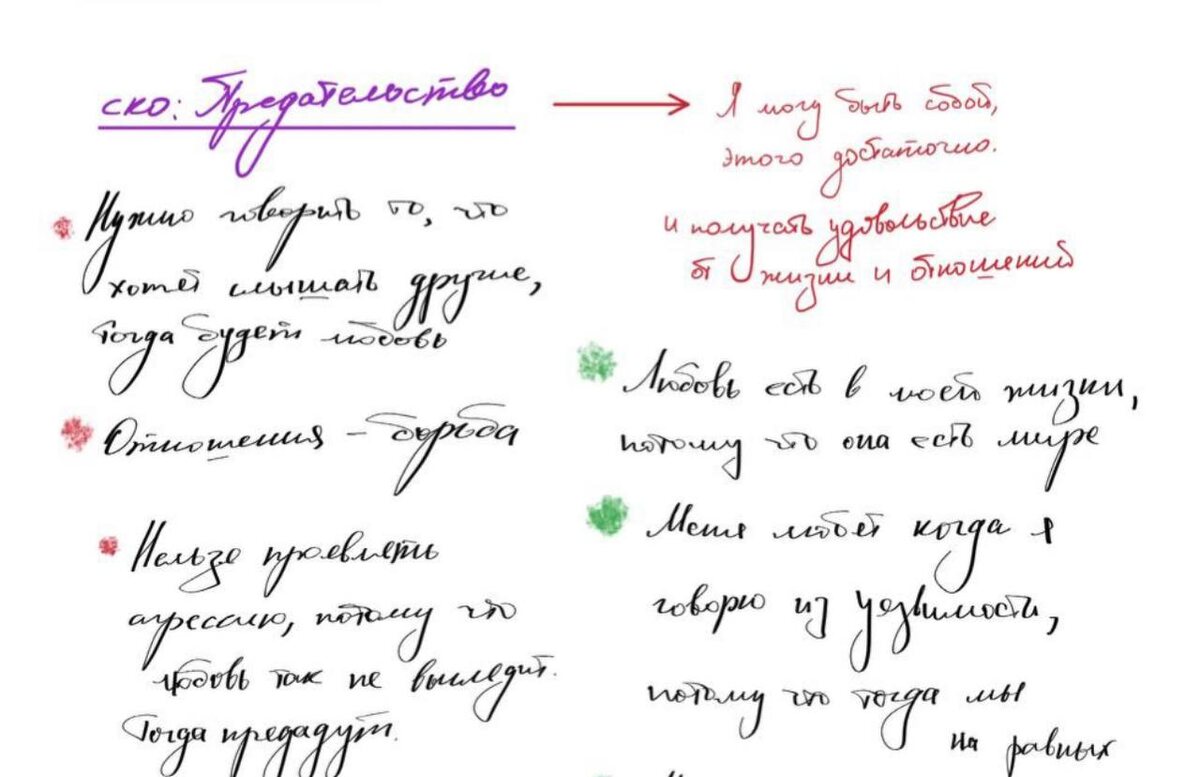 ско: Предательство
Нужно говорить то, что
хотят слышать другие,
тогда будет любовь
Отношения – борьба
Нельзя проявлять
агрессию, потому что
любовь так не выглядит.
Тогда предадут.
Я могу быть собой,
этого достаточно.
и получать удовольствие
от жизни и отношений
Любовь есть в моей жизни,
потому что она есть мире
Меня любят когда я
говорю из уязвимости,
потому что тогда мы
на равных